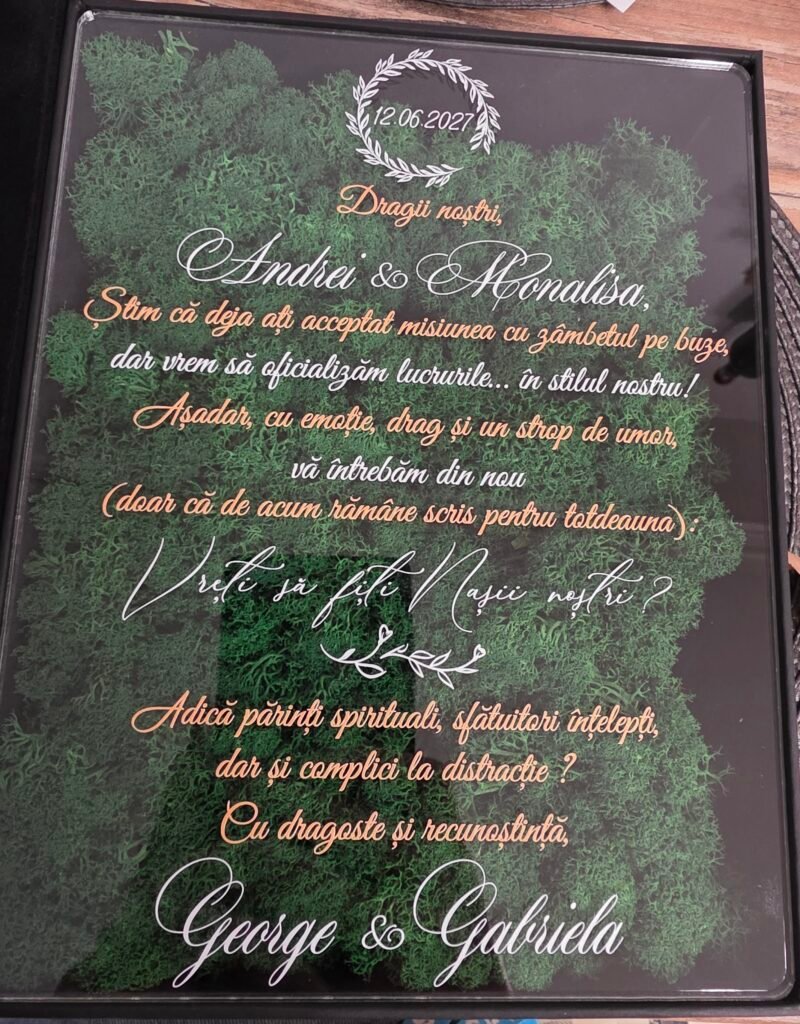 12.06.2027
Dragii noștri,
Andrei & Monalisa,
Știm că deja ați acceptat misiunea cu zâmbetul pe buze,
dar vrem să oficializăm lucrurile... în stilul nostru!
Așadar, cu emoție, drag și un strop de umor,
vă întrebăm din nou
(doar că de acum rămâne scris pentru totdeauna):
Vreți să fiți Nașii noștri ?
Adică părinți spirituali, sfătuitori înțelepți,
dar și complici la distracție ?
Cu dragoste și recunoștință,
George & Gabriela